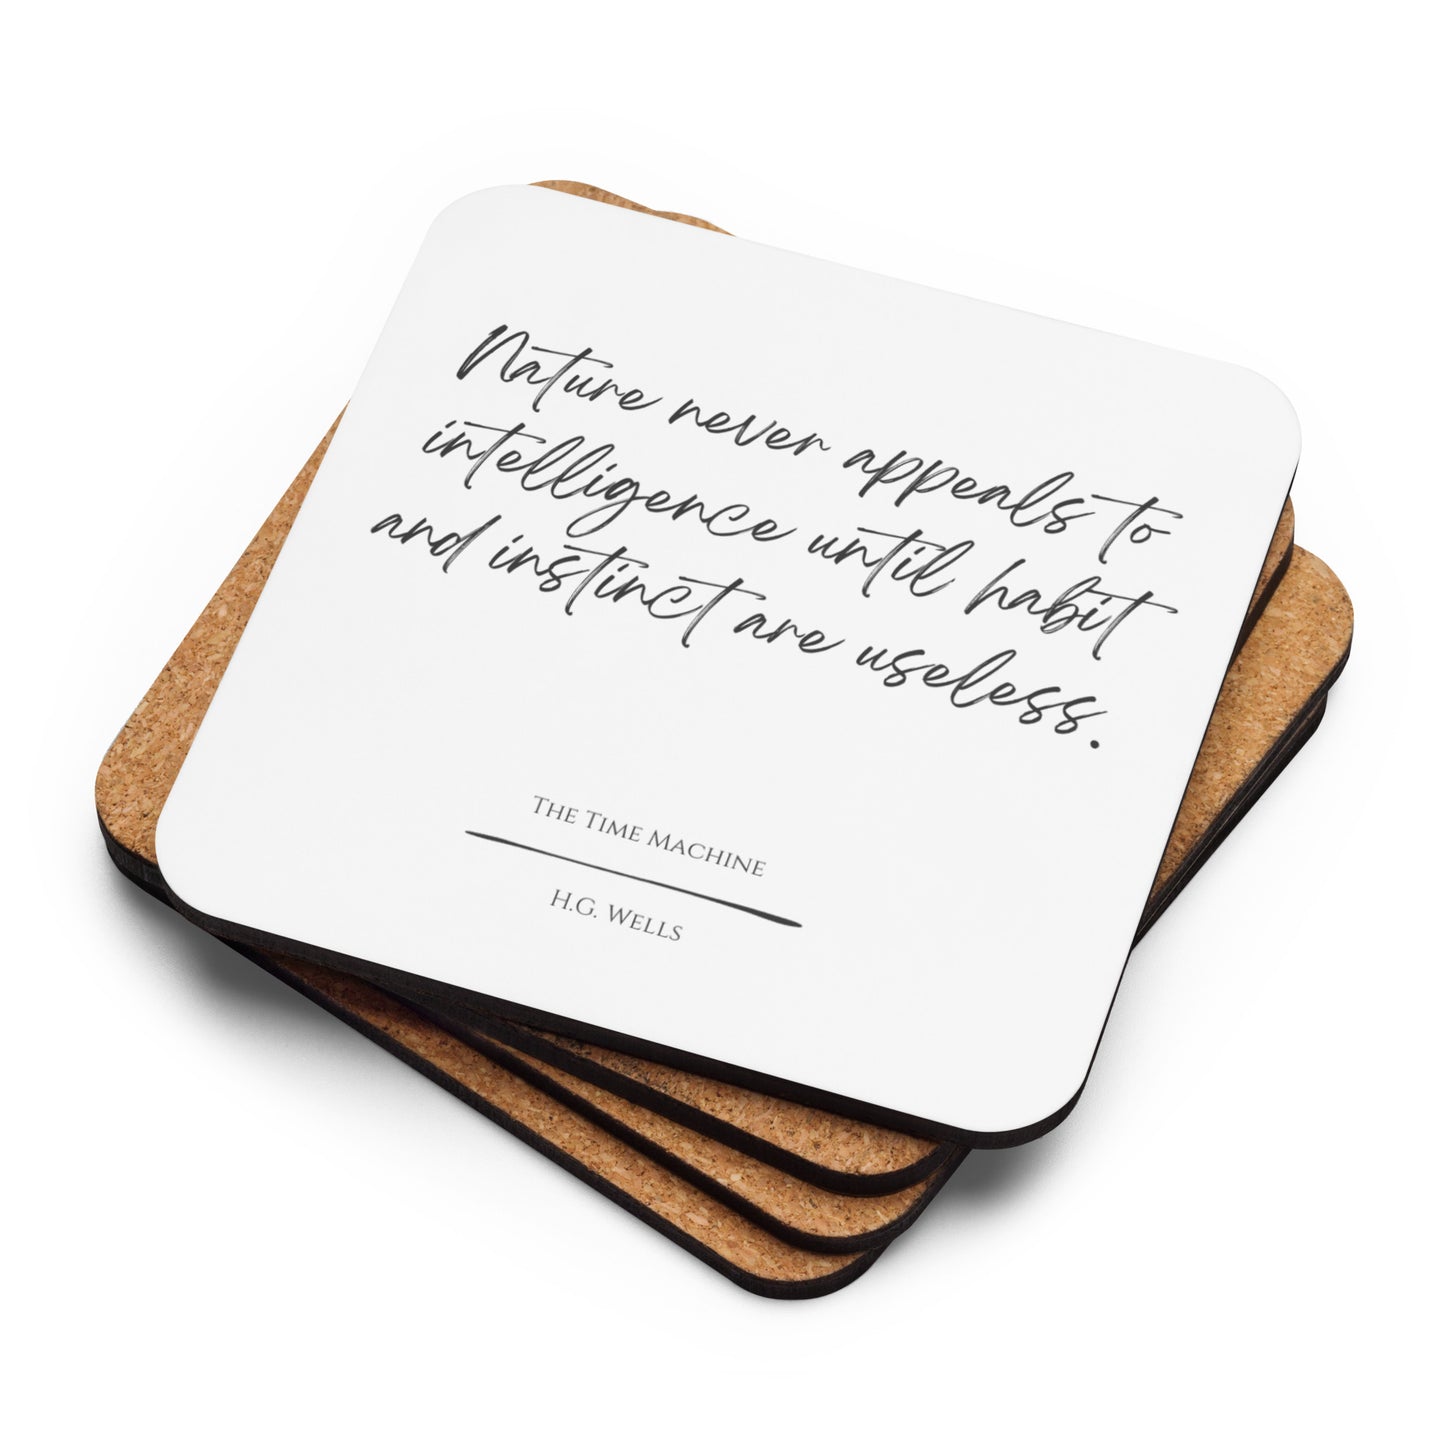 Nature never appeals to
intelligence until habit
and instinct are useless.
The Time Machine
H.G. Wells